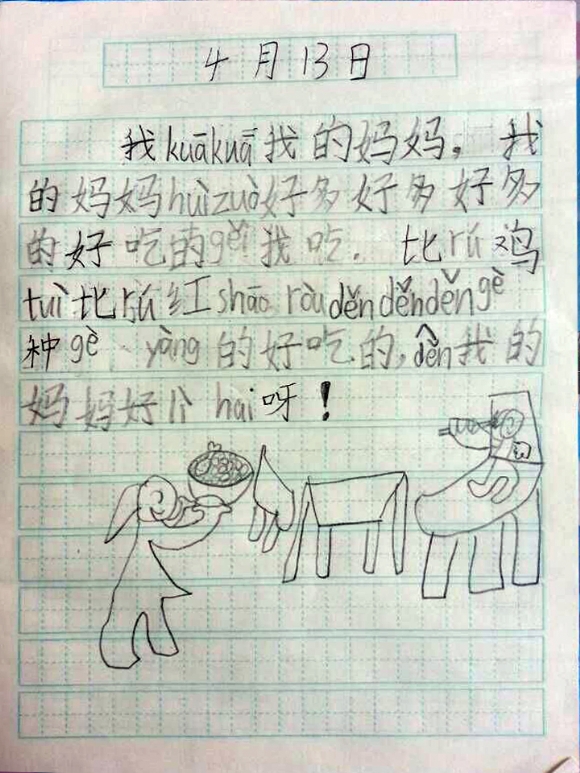 4月13日
我kuākuā我的妈妈。我
的妈妈huìzuò好多好多好多
的好吃的gěi我吃. 比rú鸡
tuì比rú红shāo ròu děnděnděn gè
种gè yàng的好吃的,děn我的
妈妈好 hai呀!